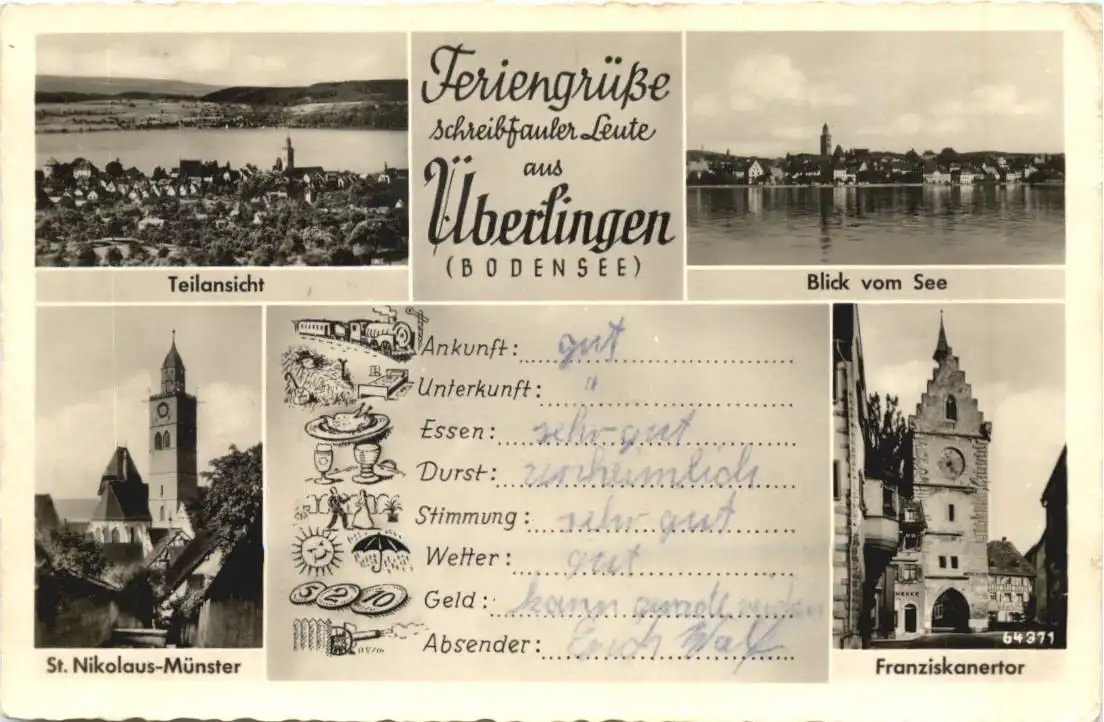 Feriengrüße
schreibfauler Leute
aus
Überlingen
(BODENSEE)
Teilansicht
Blick vom See
Ankunft: gut
Unterkunft: "
Essen: sehr gut
Durst: unheimlich
Stimmung: sehr gut
Wetter: gut
Geld: kann gerade
5 2 10
Absender: Erich
St. Nikolaus-Münster
64371
Franziskanertor